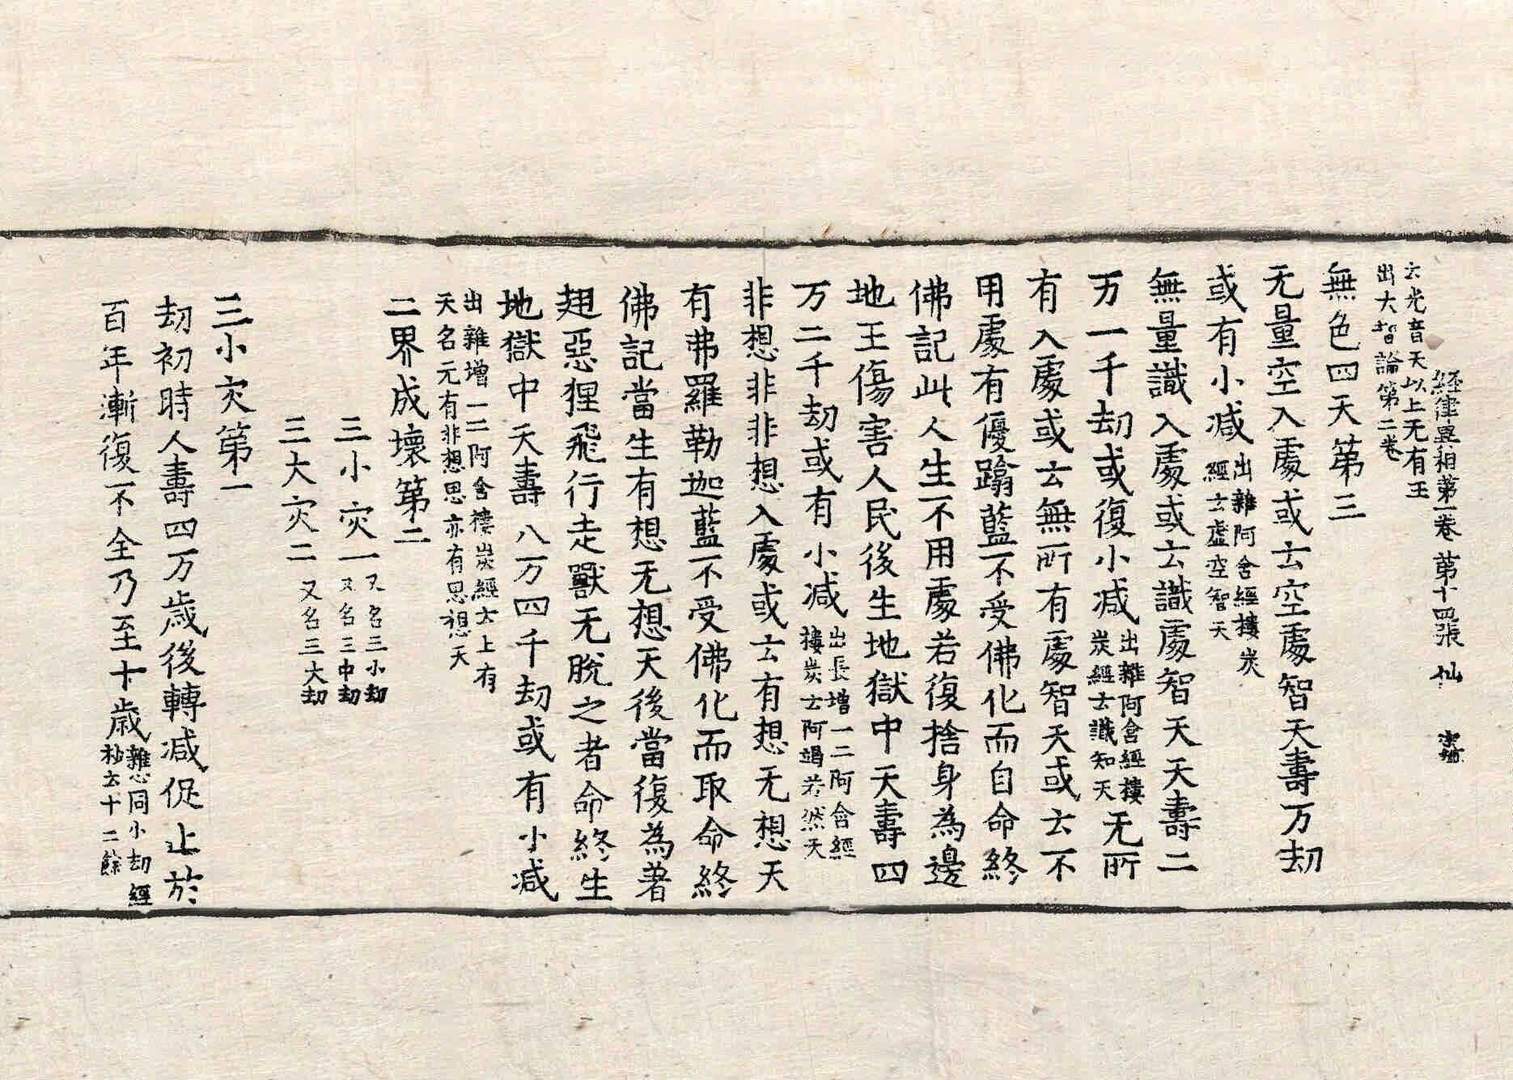 経律異相第一卷 第十四張 仙
云光音天以上无有王
出大智論第二卷
無色四天第三
无量空入處或云空處智天壽万劫
或有小减出雜阿含經樓炭
經云虚空智天
無量識入處或云識處智天天壽二
万一千劫或復小减出雜阿含經樓
炭經云識知天无所
有入處或云無所有處智天或云不
用處有優蹹藍不受佛化而自命終
佛記此人生不用處若復捨身為邊
地王傷害人民後生地獄中天壽四
万二千劫或有小减出長增一二阿含經
樓炭云阿竭若然天
非想非非想入處或云有想无想天
有弗羅勒迦藍不受佛化而取命終
佛記當生有想无想天後當復為著
翅惡狸飛行走獸无脫之者命終生
地獄中天壽八万四千劫或有小减
出雜增一二阿含樓炭經云上有
天名元有非想思亦有思想天
二界成壞第二
三小灾一又名三小劫
又名三中劫
三大灾二又名三大劫
三小灾第一
劫初時人壽四万歲後轉减促止於
百年漸復不全乃至十歲雜心同小劫經
抄云十二餘